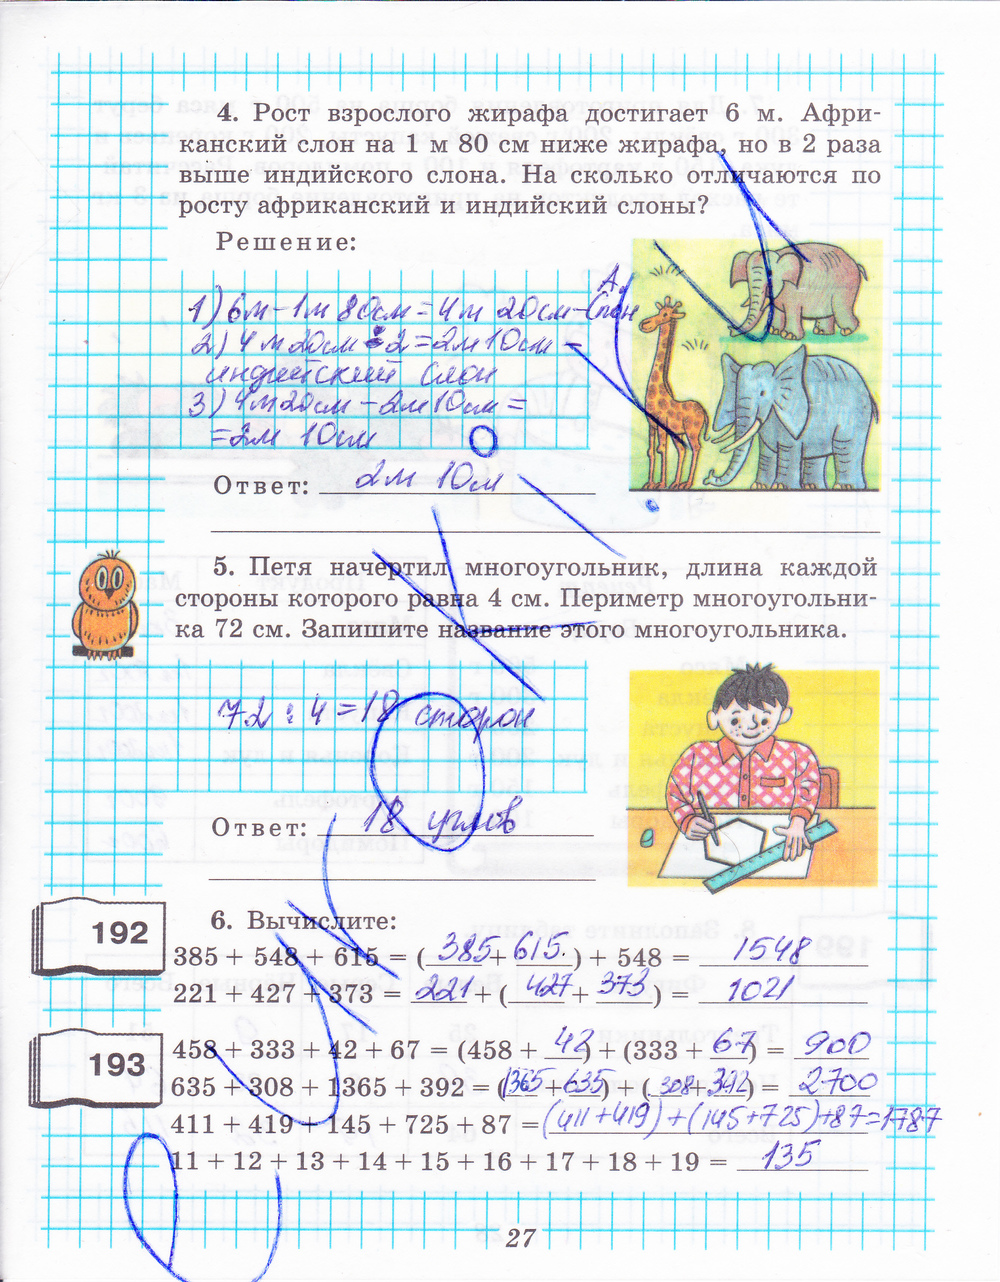 4. Рост взрослого жирафа достигает 6 м. Афри-
канский слон на 1 м 80 см ниже жирафа, но в 2 раза
выше индийского слона. На сколько отличаются по
росту африканский и индийский слоны?
Решение:
А.
1) 6м - 1м 80см = 4м 20см - Слон
2) 4м 20см : 2 = 2м 10см -
индийский слон
3) 4м 20см - 2м 10см =
= 2м 10см
Ответ: 2м 10см
5. Петя начертил многоугольник, длина каждой
стороны которого равна 4 см. Периметр многоугольни-
ка 72 см. Запишите название этого многоугольника.
72 : 4 = 18 сторон
Ответ: 18 углов
192
6. Вычислите:
385 + 548 + 615 = (385 + 615) + 548 = 1548
221 + 427 + 373 = 221 + (427 + 373) = 1021
193
458 + 333 + 42 + 67 = (458 + 42) + (333 + 67) = 900
635 + 308 + 1365 + 392 = (1365 + 635) + (308 + 392) = 2700
411 + 419 + 145 + 725 + 87 = (411 + 419) + (145 + 725) + 87 = 1787
11 + 12 + 13 + 14 + 15 + 16 + 17 + 18 + 19 = 135
27